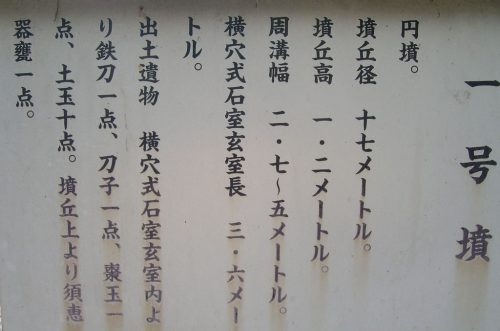 一号墳
円墳。
墳丘径　十七メートル。
墳丘高　一・二メートル。
周溝幅　二・七〜五メートル。
横穴式石室玄室長　三・六メー
トル。
出土遺物　横穴式石室玄室内よ
り鉄刀一点、刀子一点、棗玉一
点、土玉十点。墳丘上より須恵
器甕一点。